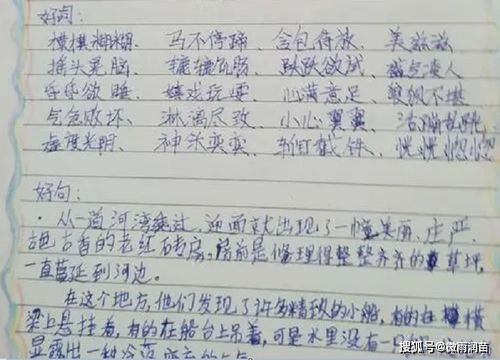 好词:
模模糊糊、马不停蹄、含苞待放、美滋滋
摇头晃脑、辘辘饥肠、跃跃欲试、盛气凌人
昏昏欲睡、嬉戏玩耍、心满意足、狼狈不堪
气急败坏、淋漓尽致、小心翼翼、活蹦乱跳
虚度光阴、神采奕奕、斩钉截铁、恍恍惚惚
好句:
·从一道河湾绕过,迎面就出现了一幢美丽、庄严、
古色古香的老红砖房,房前是修理得整整齐齐的草坪,
一直蔓延到河边。
在这个地方,他们发现了许多精致的小船,有的在横
梁上悬挂着,有的在船台上吊着,可是水里没有一
显露出一种冷落
搜狐号@微雨润苗